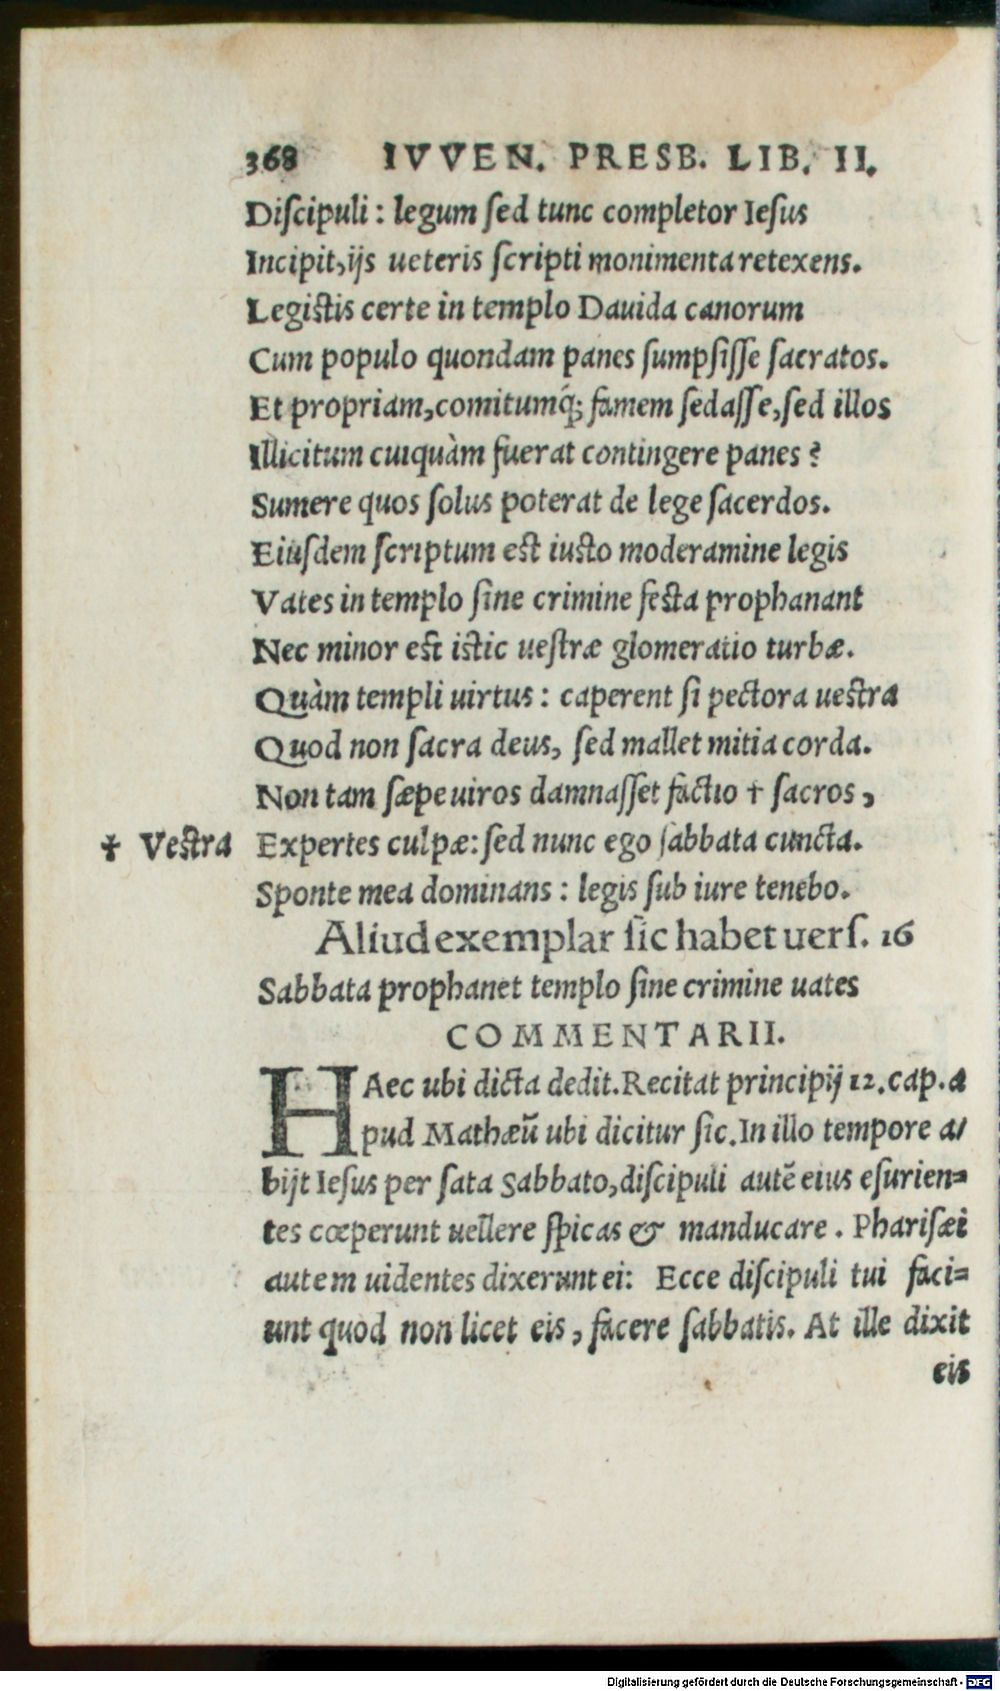 368 IVVEN. PRESB. LIB. II.
Diſcipuli : legum ſed tunc completor Ieſus
Incipit,ijs ueteris ſcripti monimenta retexens.
Legiſtis certe in templo Dauida canorum
Cum populo quondam panes ſumpſiſſe ſacratos.
Et propriam,comitumq́; famem ſedaſſe,ſed illos
Illicitum cuiquàm fuerat contingere panes ?
Sumere quos ſolus poterat de lege ſacerdos.
Eiuſdem ſcriptum eſt iuſto moderamine legis
Vates in templo ſine crimine feſta prophanant
Nec minor eſt iſtic ueſtræ glomeratio turbæ.
Quàm templi uirtus : caperent ſi pectora ueſtra
Quod non ſacra deus, ſed mallet mitia corda.
Non tam ſæpe uiros damnaſſet factio † ſacros ,
† Veſtra Expertes culpæ: ſed nunc ego ſabbata cuncta.
Sponte mea dominans : legis ſub iure tenebo.
Aliud exemplar ſic habet uerſ. 16
Sabbata prophanet templo ſine crimine uates
COMMENTARII.
HAec ubi dicta dedit.Recitat principij 12.cap.a
pud Mathæū ubi dicitur ſic.In illo tempore a/
bijt Ieſus per ſata Sabbato,diſcipuli autē eius eſurien=
tes cœperunt uellere ſpicas & manducare . Phariſæi
autem uidentes dixerunt ei: Ecce diſcipuli tui faci=
unt quod non licet eis , facere ſabbatis. At ille dixit
eis
Digitalisierung gefördert durch die Deutsche Forschungsgemeinschaft - DFG